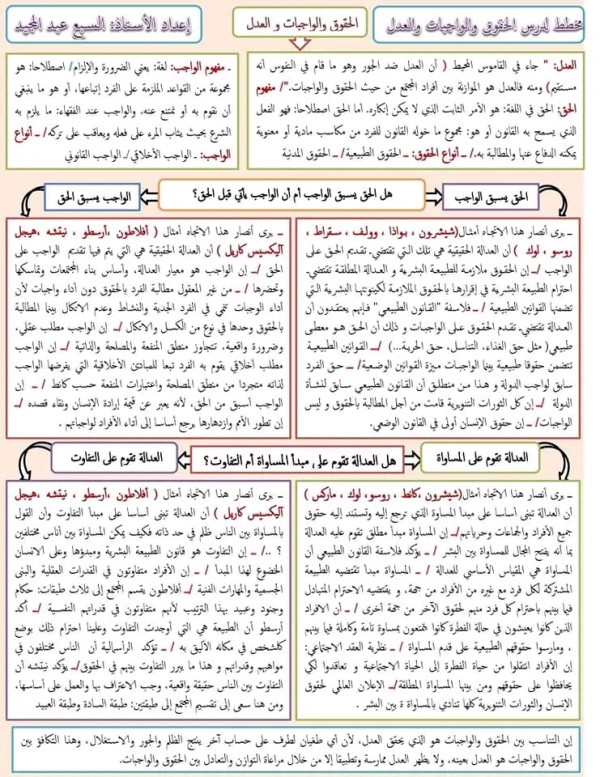 مخطط لدرس الحقوق والواجبات والعدل
الحقوق والواجبات و العدل
إعداد الأستاذ: السبع عبد المجيد
العدل: " جاء في القاموس المحيط ( أن العدل ضد الجور وهو ما قام في النفوس أنه
مستقيم) ومنه فالعدل هو الموازنة بين أفراد المجتمع من حيث الحقوق والواجبات."/ مفهوم
الحق: الحق في اللغة: هو الأمر الثابت الذي لا يمكن إنكاره. أما الحق اصطلاحا: فهو الفعل
الذي يسمح به القانون أو هو: مجموع ما خوله القانون للفرد من مكاسب مادية أو معنوية
يمكنه الدفاع عنها والمطالبة به./ ــ أنواع الحقوق: ــ الحقوق الطبيعية/ ــ الحقوق المدنية
ـ مفهوم الواجب: لغة: يعني الضرورة والإلزام/ اصطلاحا: هو
مجموعة من القواعد الملزمة على الفرد إتباعها، أو هو ما ينبغي
أن نقوم به أو نمتنع عنه. والواجب عند الفقهاء: ما يلزم به
الشرع بحيث يثاب المرء على فعله ويعاقب على تركه/ ــ أنواع
الواجب: ــ الواجب الأخلاقي/ ــ الواجب القانوني
الحق يسبق الواجب
هل الحق يسبق الواجب أم أن الواجب يأتي قبل الحق؟
الواجب يسبق الحق
ــ يرى أنصار هذا الاتجاه أمثال(شيشرون ، بوادا، وولف، سقراط ،
روسو ، لوك ) أن العدالة الحقيقية هي تلك التي تقتضي تقديم الحق على
الواجب /ــ إن الحقوق ملازمة للطبيعة البشرية و العدالة المطلقة تقتضي
احترام الطبيعة البشرية في إقرارها بالحقوق الملازمة لكينونتها البشرية التي
تضمنها القوانين الطبيعية /ــ فلاسفة "القانون الطبيعي" فإنهم يعتقدون أن
العدالة تقتضي تقدم الحقوق على الواجبات و ذلك أن الحق هو معطى
طبيعي( مثل حق الغذاء، التناسل، حق الحرية...)/ ــ القوانين الطبيعية
تتضمن حقوقا طبيعية بينما الواجبات ميزة القوانين الوضعية./ــ حق الفرد
سابق لواجب الدولة و هذا من منطلق أن القانون الطبيعي سابق لنشأة
الدولة /ــ إن كل الثورات التنويرية قامت من أجل المطالبة بالحقوق و ليس
الواجبات/ــ إن حقوق الإنسان أولى في القانون الوضعي.
ــ يرى أنصار هذا الاتجاه أمثال ( أفلاطون، أرسطو ، نيتشه، هيجل
أليكسيس كاريل ) أن العدالة الحقيقية هي التي يتم فيها تقديم الواجب على
الحق /ــ إن الواجب هو معيار العدالة، وأساس بناء المجتمعات وتماسكها
وتحضرها / ــ من غير المعقول مطالبة الفرد بالحقوق دون أداء واجبات لأن
أداء الوجبات تنمي في الفرد الجدية والنشاط وعدم الاتكال بينما المطالبة
بالحقوق وحدها في نوع من الكسل والاتكال /ــ إن الواجب مطلب عقلي،
وضرورة واقعية، تتجاوز منطق المنفعة والمصلحة والذاتية / ــ إن الواجب
مطلب أخلاقي يقوم به الفرد تبعا للمبادئ الأخلاقية التي يفرضها الواجب
لذاته متجردا من منطق المصلحة واعتبارات المنفعة حسب كانط / ــ إن
الواجب أسبق من الحق، لأنه يعبر عن قيمة إرادة الإنسان ونقاء قصده /ــ
إن تطور الأمم وازدهارها يرجع أساسا إلى أداء الأفراد لواجباتهم .
العدالة تقوم على المساواة
هل العدالة تقوم على مبدأ المساواة أم التفاوت؟
العدالة تقوم على التفاوت
ــ يرى أنصار هذا الاتجاه أمثال(شيشرون ،كانط ، روسو، لوك ، ماركس )
أن العدالة تبنى أساسا على مبدا المساواة الذي ترجع إليه وتستند إليه حقوق
جميع الأفراد والجماعات وحرياتهم/ــ إن المساواة مبدأ مطلق تقوم عليه العدالة
بما أنه يفتح المجال للمساواة بين البشر / ــ يؤكد فلاسفة القانون الطبيعي أن
المساواة هي المقياس الأساسي للعدالة / ــ المساواة مبدأ تقتضيه الطبيعة
المشتركة لكل فرد مع غيره من الأفراد من جهة، و يقتضيه الاحترام المتبادل
فيما بينهم باحترام كل فرد منهم لحقوق الآخر من جهة أخرى / ــ أن الافراد
الذين كانوا يعيشون في حالة الفطرة كانوا يتمتعون بمساواة تامة وكاملة فيما بينهم
، ومارسوا حقوقهم الطبيعية على قدم المساواة / ــ نظرية العقد الاجتماعي:
إن الأفراد انتقلوا من حياة الفطرة إلى الحياة الاجتماعية و تعاقدوا لكي
يحافظوا على حقوقهم ومن بينها المساواة المطلقة/ــ الإعلان العالمي لحقوق
الإنسان والثورات التنويرية كلها تنادي بالمساواة ة بين البشر .
ــ يرى أنصار هذا الاتجاه أمثال ( أفلاطون ،أرسطو ، نيتشه ،هيجل
أليكسيس كاريل ) أن العدالة تبنى أساسا على مبدا التفاوت وان القول
بالمساواة بين الناس ظلم في حد ذاته فكيف يمكن المساواة بين أناس مختلفين
؟ ../ــ إن التفاوت هو قانون الطبيعة البشرية ومبدؤها وعلى الانسان
الخضوع لهذا المبدا /ــ إن الأفراد متفاوتون في القدرات العقلية والبنى
الجسمية والمهارات الفنية /ــ أفلاطون يقسم المجتمع إلى ثلاث طبقات: حكام
وجنود وعبيد بهذا الترتيب لأنهم متفاوتون في قدراتهم النفسية / ــ أكد
أرسطو أن الطبيعة هي التي أوجدت التفاوت وعلينا احترام ذلك بوضع
كلشخص في مكانه الأليق به / ــ تؤكد الرأسمالية أن الناس مختلفون في
مواهبهم وقدراتهم و هذا ما يبرر التفاوت بينهم في الحقوق/ــ يؤكد نيتشه أن
التفاوت بين الناس حقيقة واقعية، وجب الاعتراف بها والعمل على أساسها،
ومن هنا سعى إلى تقسيم المجتمع إلى طبقتين: طبقة السادة وطبقة العبيد
إن التناسب بين الحقوق والواجبات هو الذي يحقق العدل، لأن أي طغيان لطرف على حساب آخر ينتج الظلم والجور والاستغلال، وهذا التكافؤ بين
الحقوق والواجبات هو العدل بعينه، ولا يظهر العدل ممارسة وتطبيقا إلا من خلال مراعاة التوازن والتعادل بين الحقوق والواجبات.